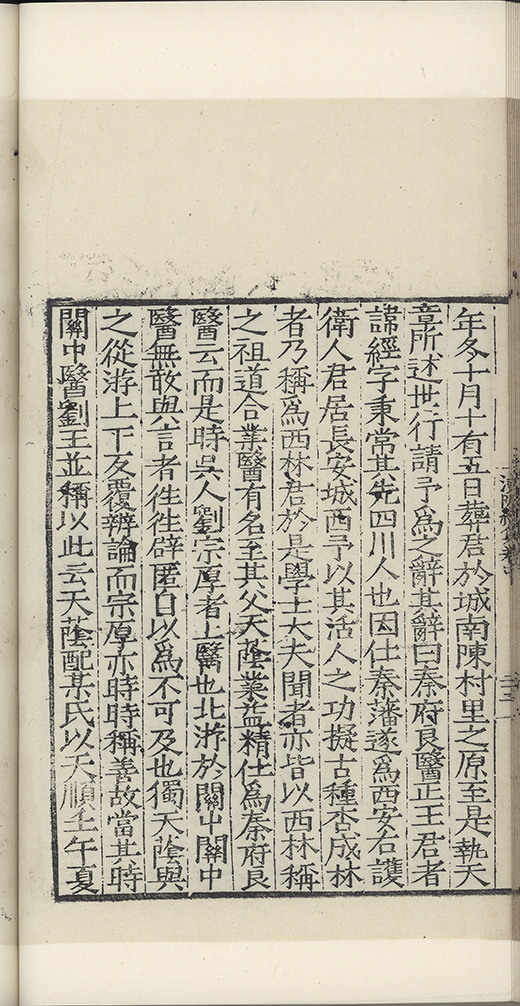 年冬十月十有五日葬君於城南陳村里之原至是執天
章所述世行請予爲之辭其辭曰秦府良醫正王君者
諱經字秉常其先四川人也因仕秦藩遂爲西安右護
衛人君居長安城西予以其活人之功擬古種杏成林
者乃稱爲西林君於是學士大夫聞者亦皆以西林稱
之祖道合業醫有名至其父天蔭業益精仕爲秦府良
醫云而是時吳人劉宗厚者上醫也北游於關中關中
醫無敢與言者徃徃辟匿自以爲不可及也獨天蔭與
之從游上下反覆辨論而宗厚亦時時稱善故當其時
關中醫劉王並稱以此云天蔭配某氏以天順壬午夏